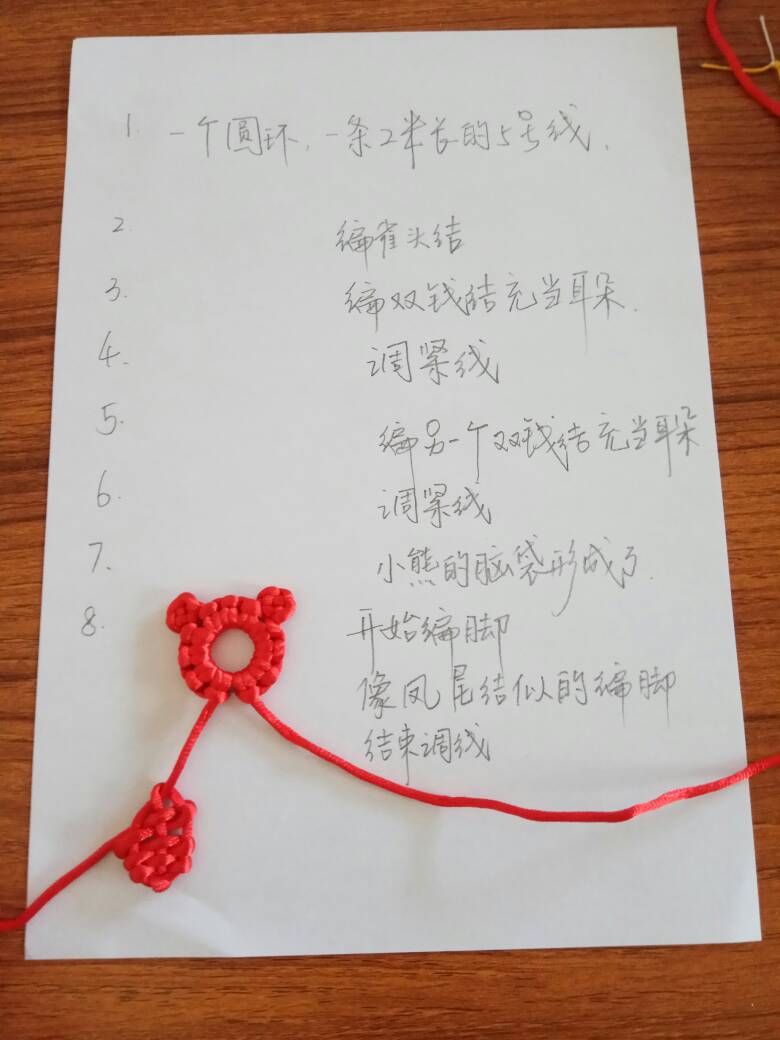 1. 一个圆环，一条2米长的5号线.
2. 编雀头结
3. 编双钱结充当耳朵.
4. 调紧线
5. 编另一个双钱结充当耳朵
6. 调紧线
7. 小熊的脑袋形成了.
8. 开始编脚
像凤尾结似的编脚
结束调线